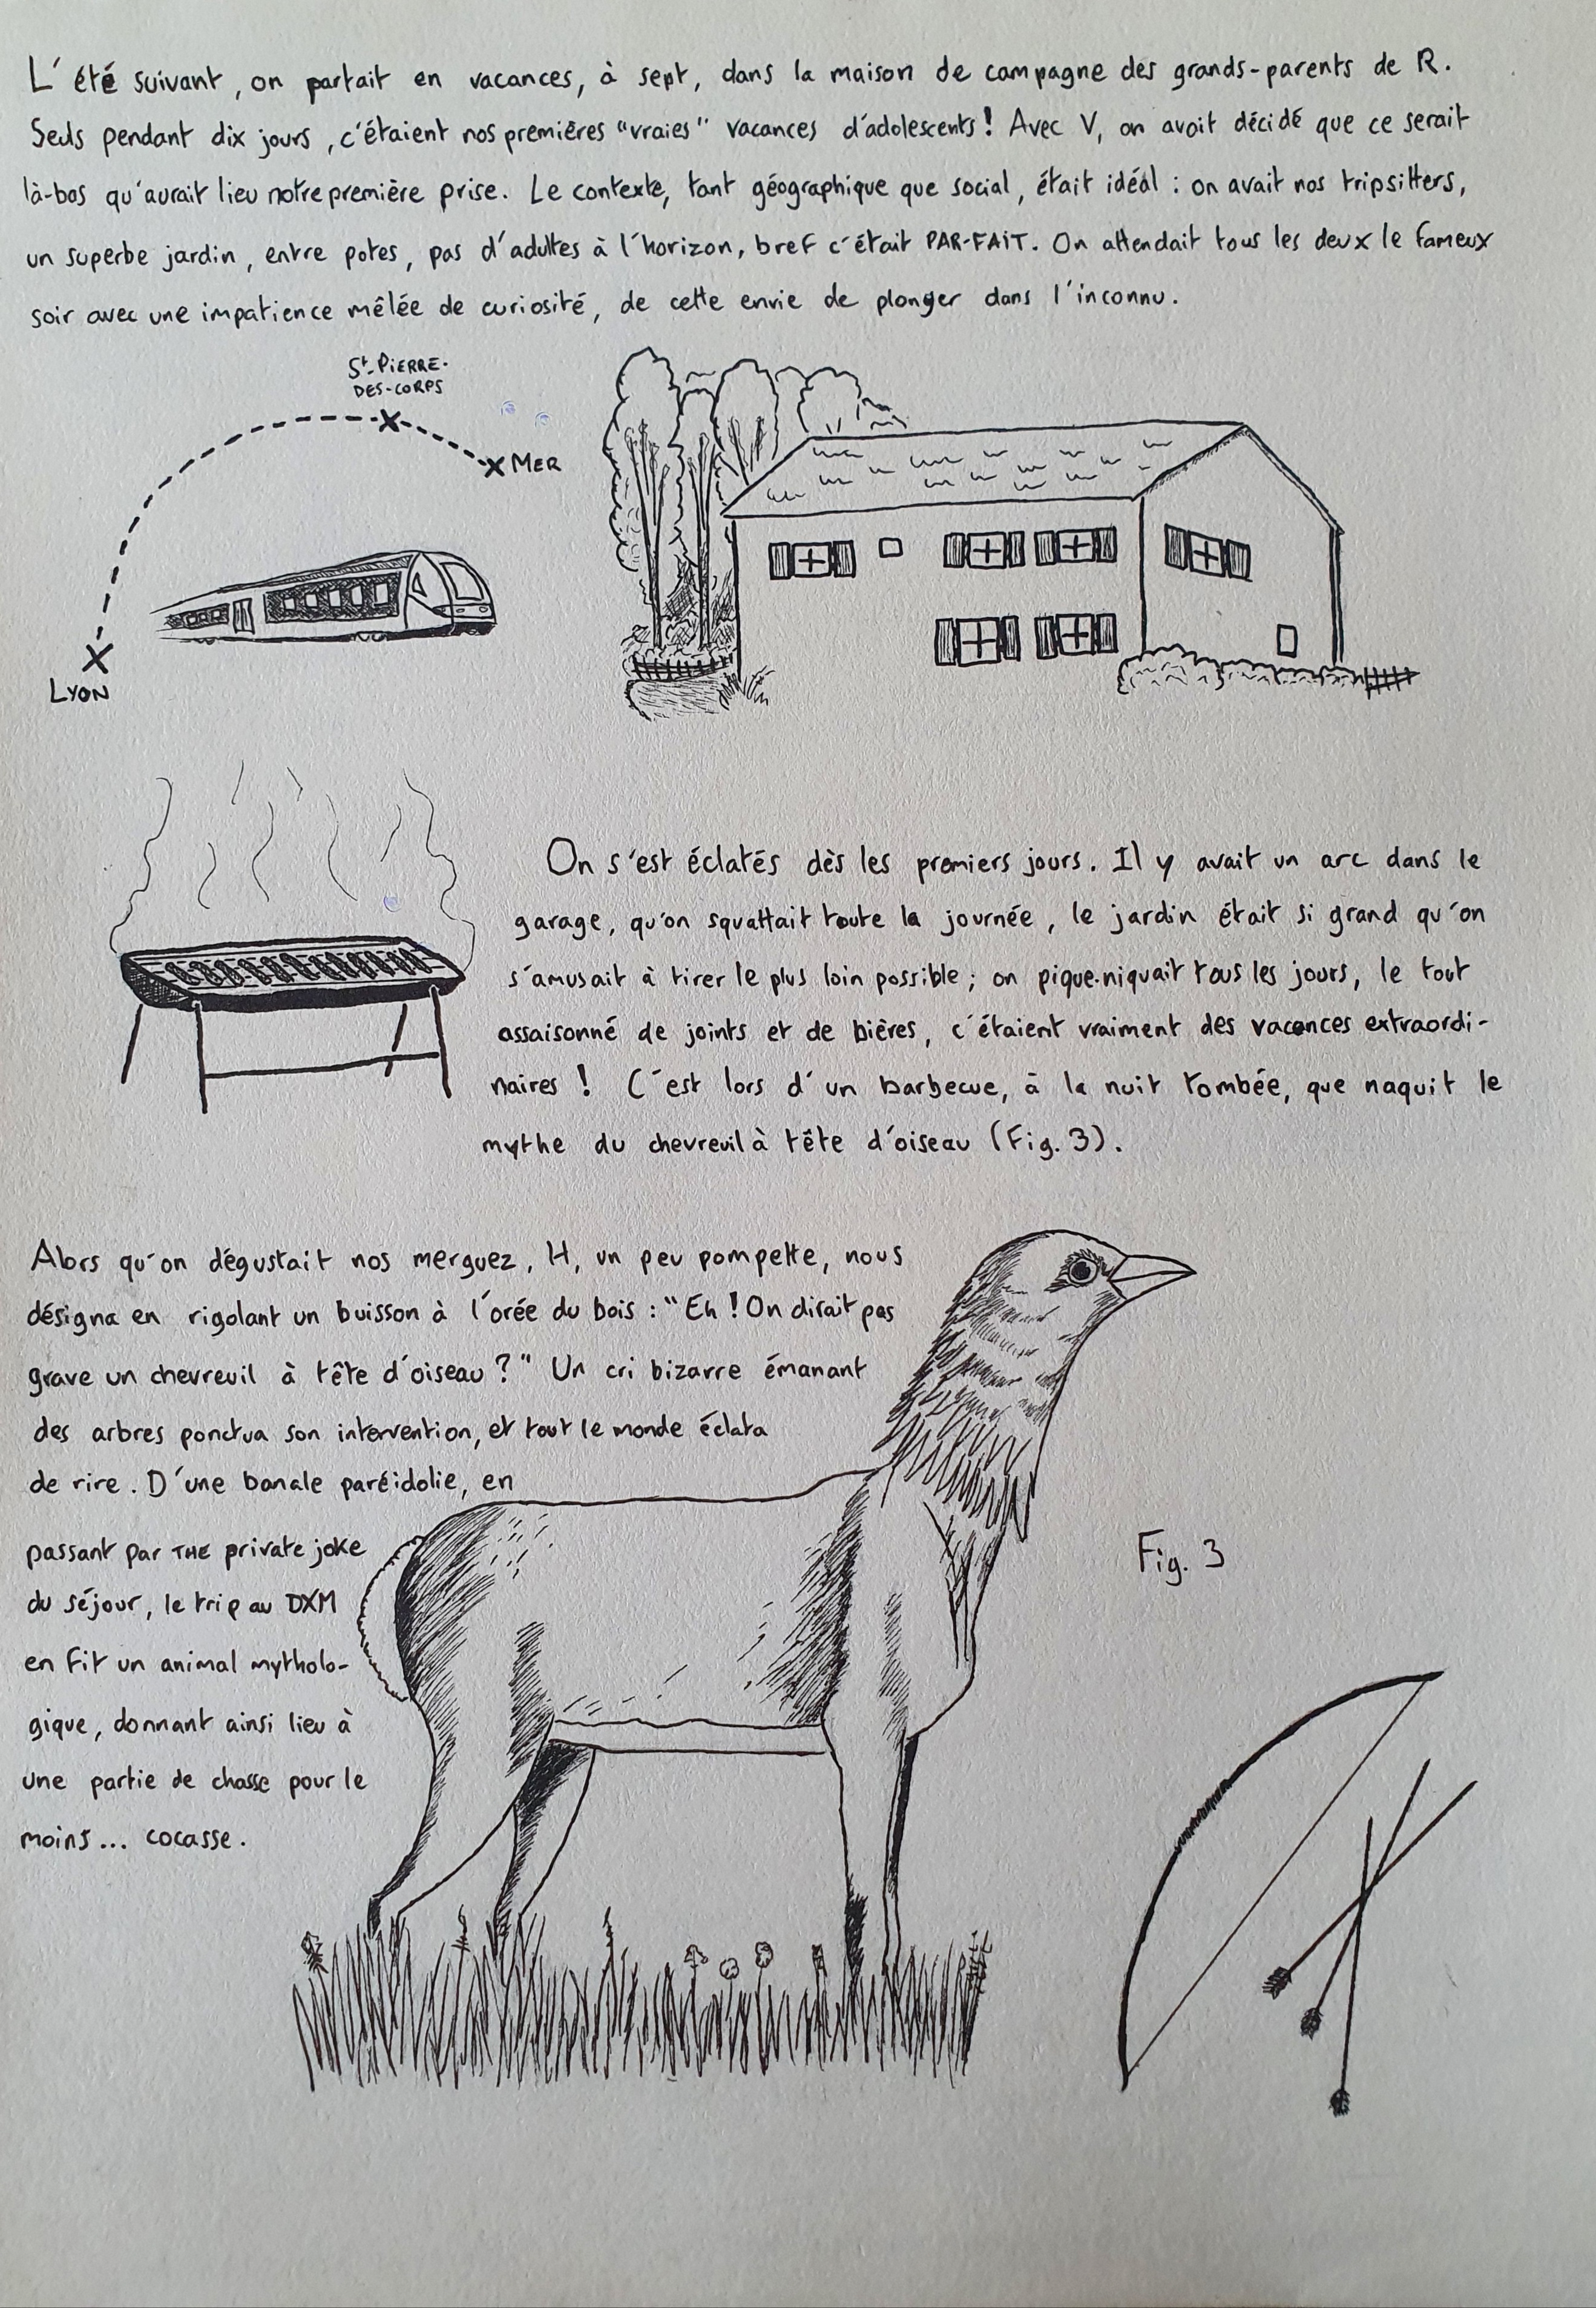 L'été suivant, on partait en vacances, à sept, dans la maison de campagne des grands-parents de R.
Seuls pendant dix jours, c'étaient nos premières "vraies" vacances d'adolescents! Avec V, on avait décidé que ce serait
là-bas qu'aurait lieu notre première prise. Le contexte, tant géographique que social, était idéal : on avait nos tripsitters,
un superbe jardin, entre potes, pas d'adultes à l'horizon, bref c'était PAR-FAIT. On attendait tous les deux le fameux
soir avec une impatience mêlée de curiosité, de cette envie de plonger dans l'inconnu.
St-PIERRE-
DES-CORPS
MER
LYON
On s'est éclatés dès les premiers jours. Il y avait un arc dans le
garage, qu'on squattait toute la journée, le jardin était si grand qu'on
s'amusait à tirer le plus loin possible ; on pique-niquait tous les jours, le tout
assaisonné de joints et de bières, c'étaient vraiment des vacances extraordi-
naires ! C'est lors d'un barbecue, à la nuit tombée, que naquit le
mythe du chevreuil à tête d'oiseau (Fig. 3).
Alors qu'on dégustait nos merguez, H, un peu pompette, nous
désigna en rigolant un buisson à l'orée du bois : "Eh ! On dirait pas
grave un chevreuil à tête d'oiseau ?" Un cri bizarre émanant
des arbres ponctua son intervention, et tout le monde éclata
de rire. D'une banale paréidolie, en
passant par THE private joke
du séjour, le trip au DXM
en fit un animal mytholo-
gique, donnant ainsi lieu à
une partie de chasse pour le
moins... cocasse.
Fig. 3